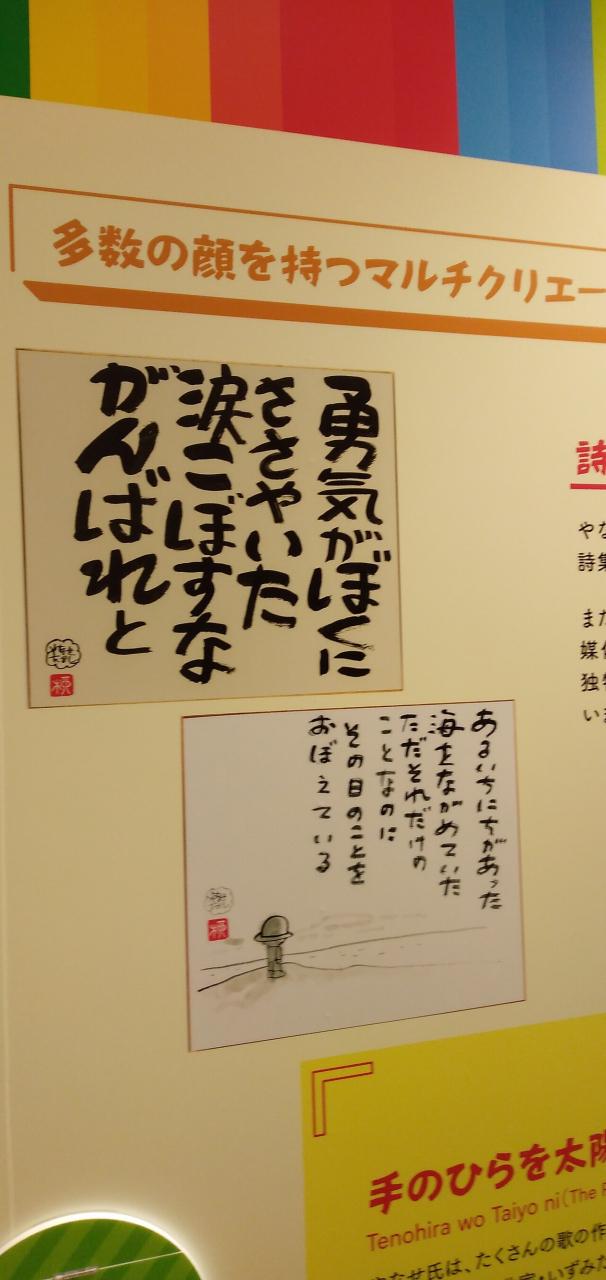 多数の顔を持つマルチクリエー
勇気がぼくに
ささやいた
涙こぼすな
がんばれと
あるいちにちがあった
海をながめていた
ただそれだけの
ことなのに
その日のことを
おぼえている
詩
やな
詩集
また
媒体
独特
いま
手のひらを太陽
Tenohira wo Taiyo ni(The
やなせ氏は、たくさんの歌の作
いずみた